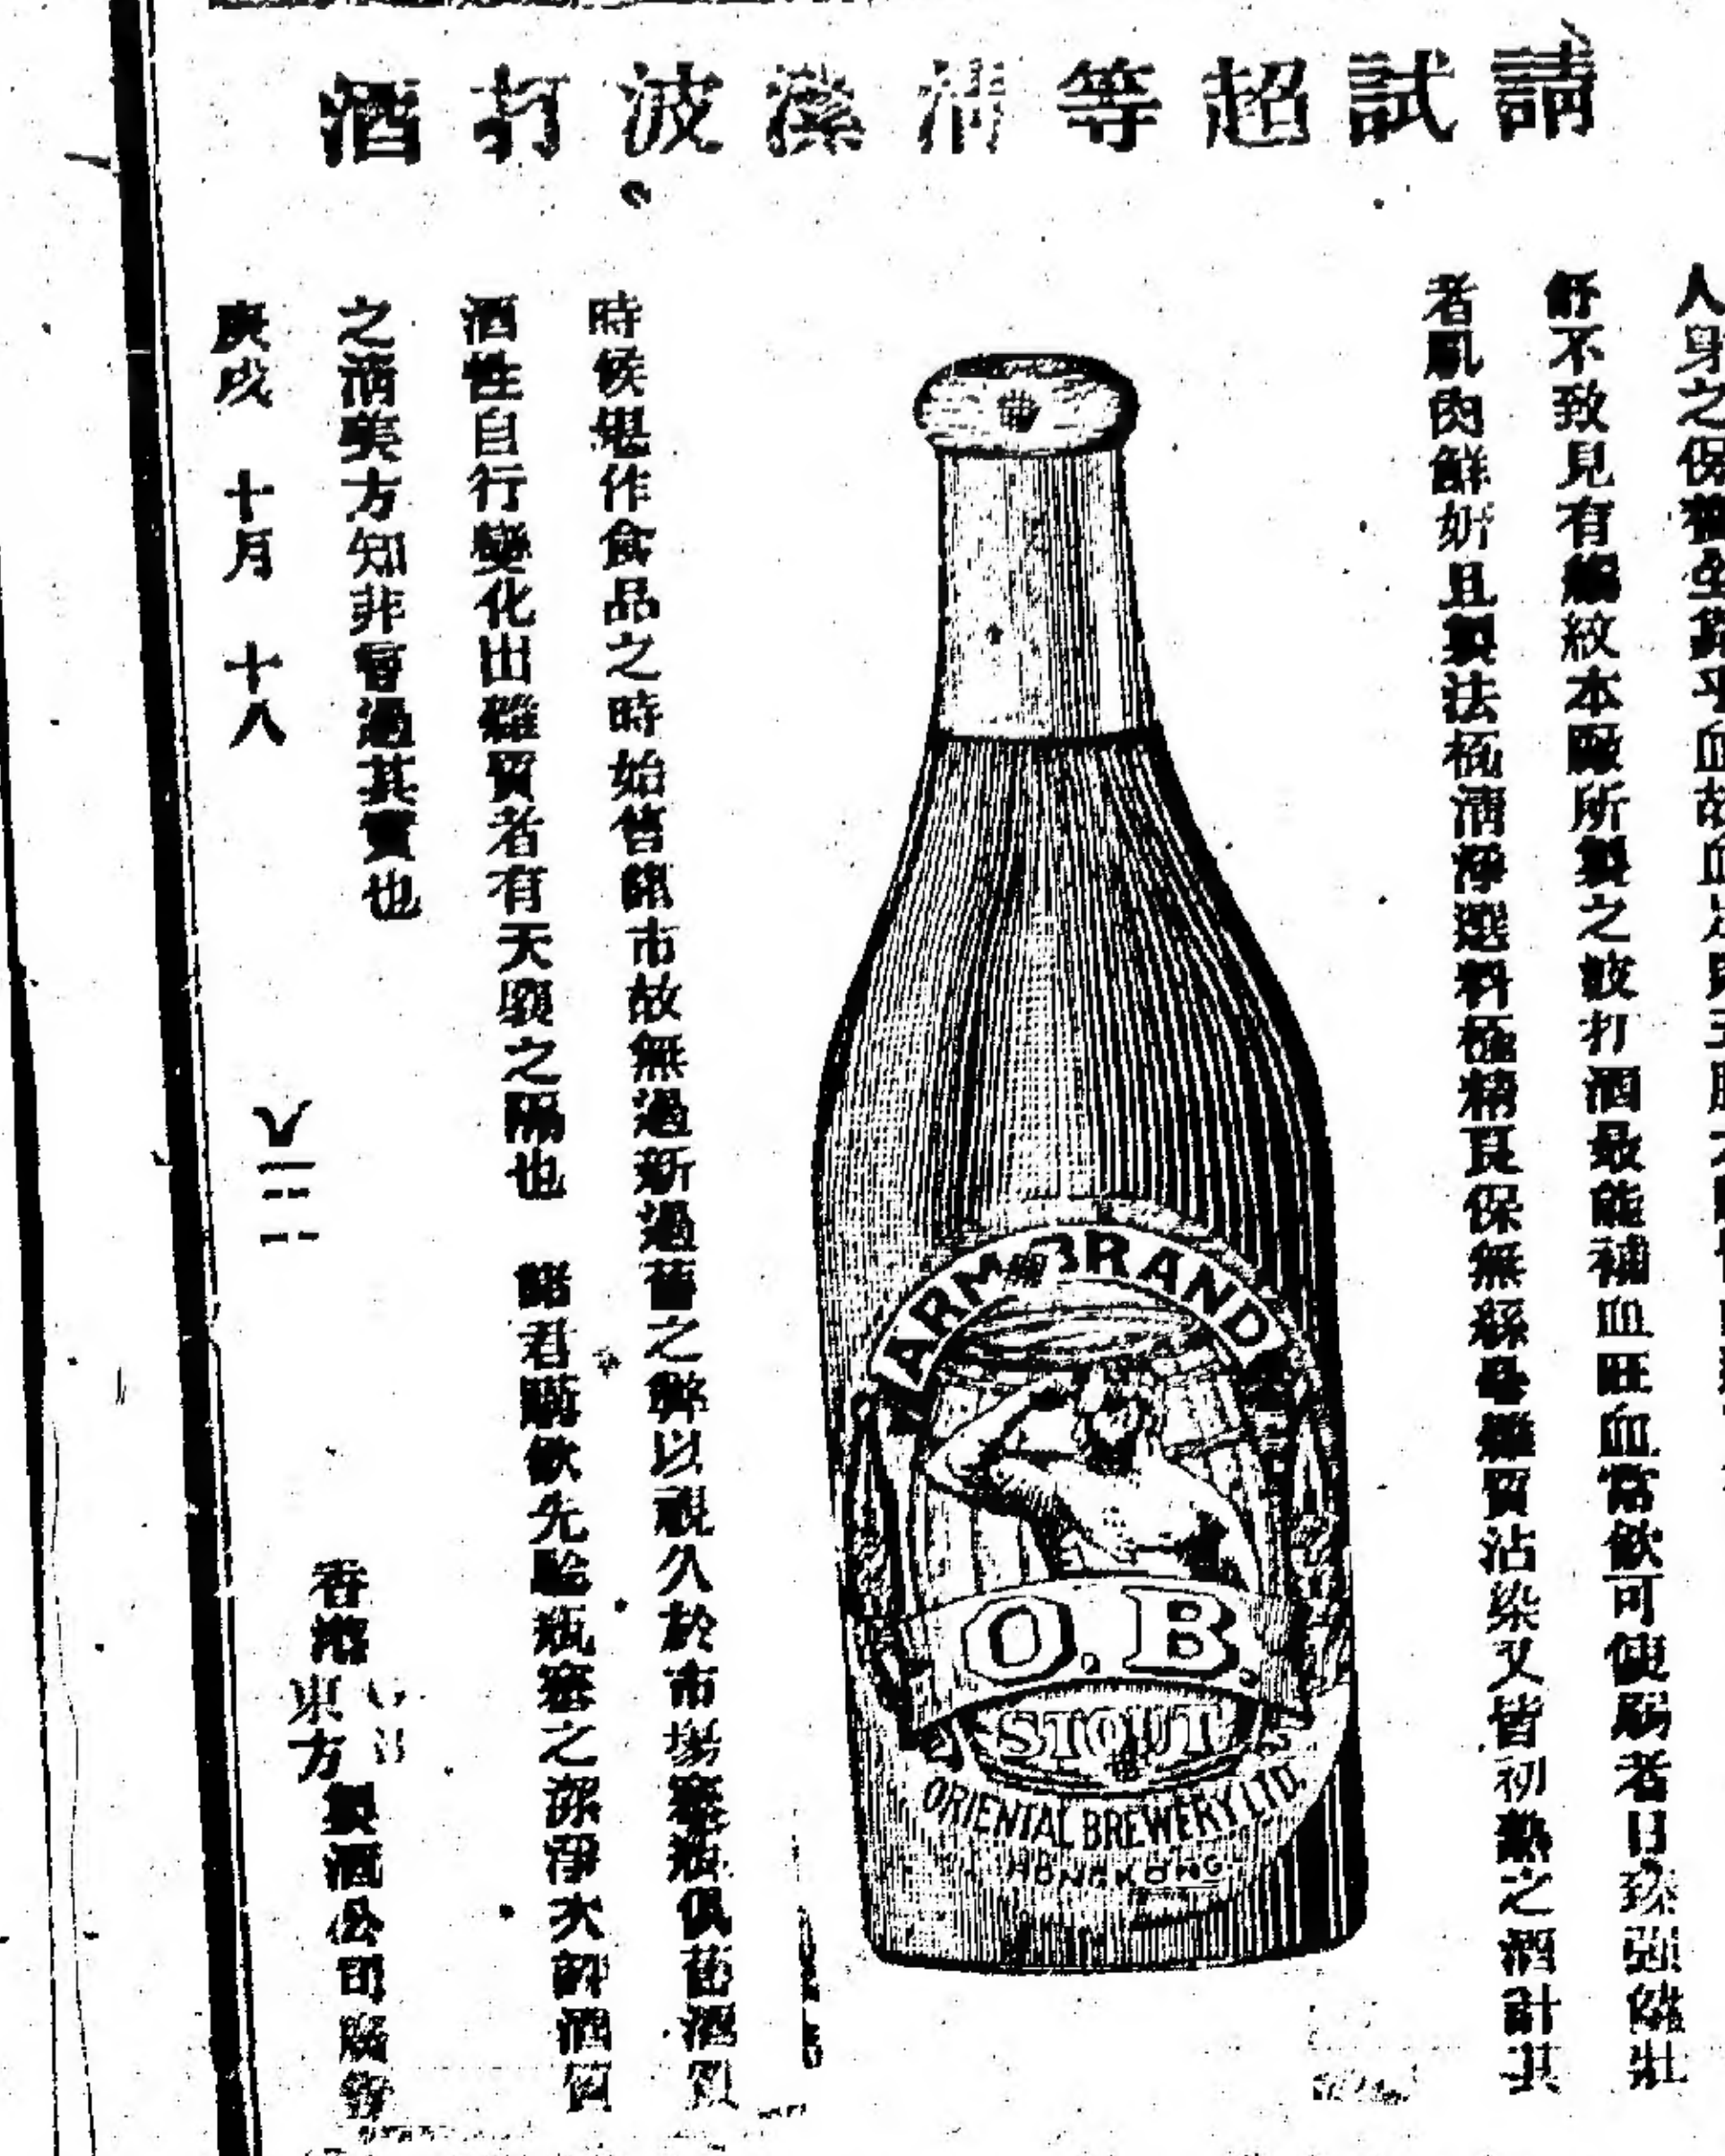 請試超等清潔波打酒
人身之保養全賴乎血故血
舒不致見有皺紋本廠所製之波打酒最能補血旺血常飲可使弱者日臻强健壯
者肌肉鮮妍且製法極清淨選料極精良保無絲毫雜質沾染又皆初熟之酒計其
ARM BRAND
O.B.
STOUT
ORIENTAL BREWERY LTD.
HONGKONG
時侯堪作食品之時始售諸市故無過新過舊之弊以視久於市場塞瓶俱舊酒質
酒性自行變化出雜質者有天壤之隔也 諸君購飲先驗瓶塞之潔淨次辨酒質
之清美方知非嘗過其實也
庚戌 十月 十八
香港東方製酒公司廣告